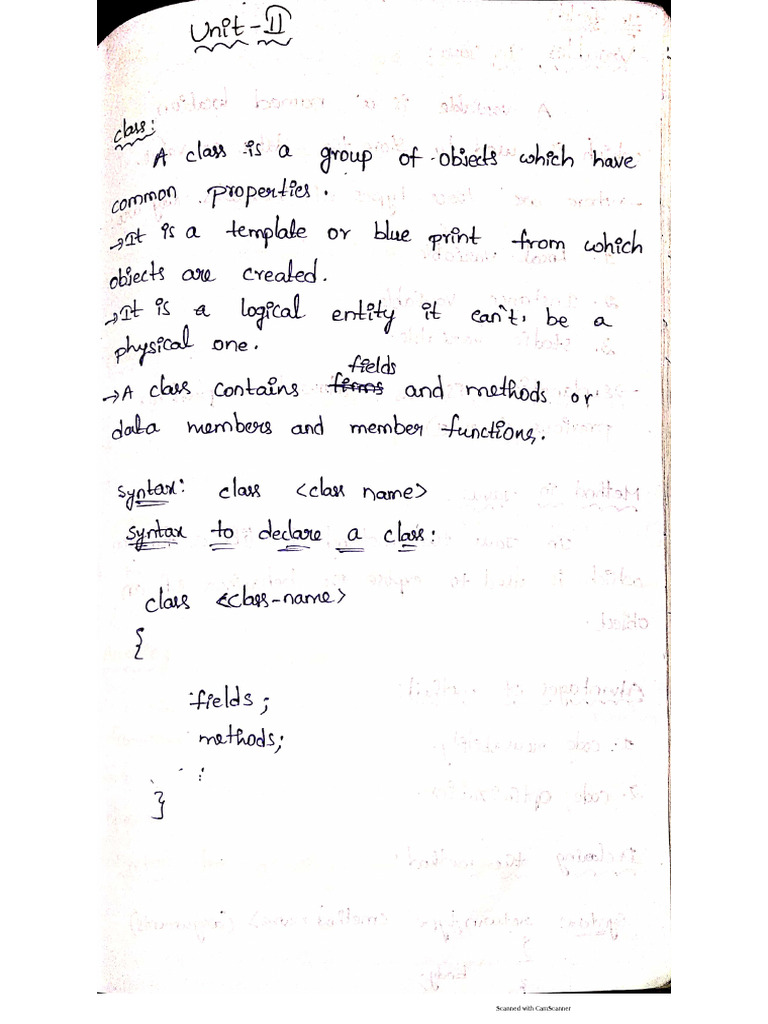 Unit-II
class:
A class is a group of objects which have
common properties.
→It is a template or blue print from which
objects are created.
→It is a logical entity it can't be a
physical one.
fields
→A class contains forms and methods or
data members and member functions.
Syntax: class <class name>
Syntax to declare a class:
class <class-name>
{
fields;
methods;
:
}
Scanned with CamScanner